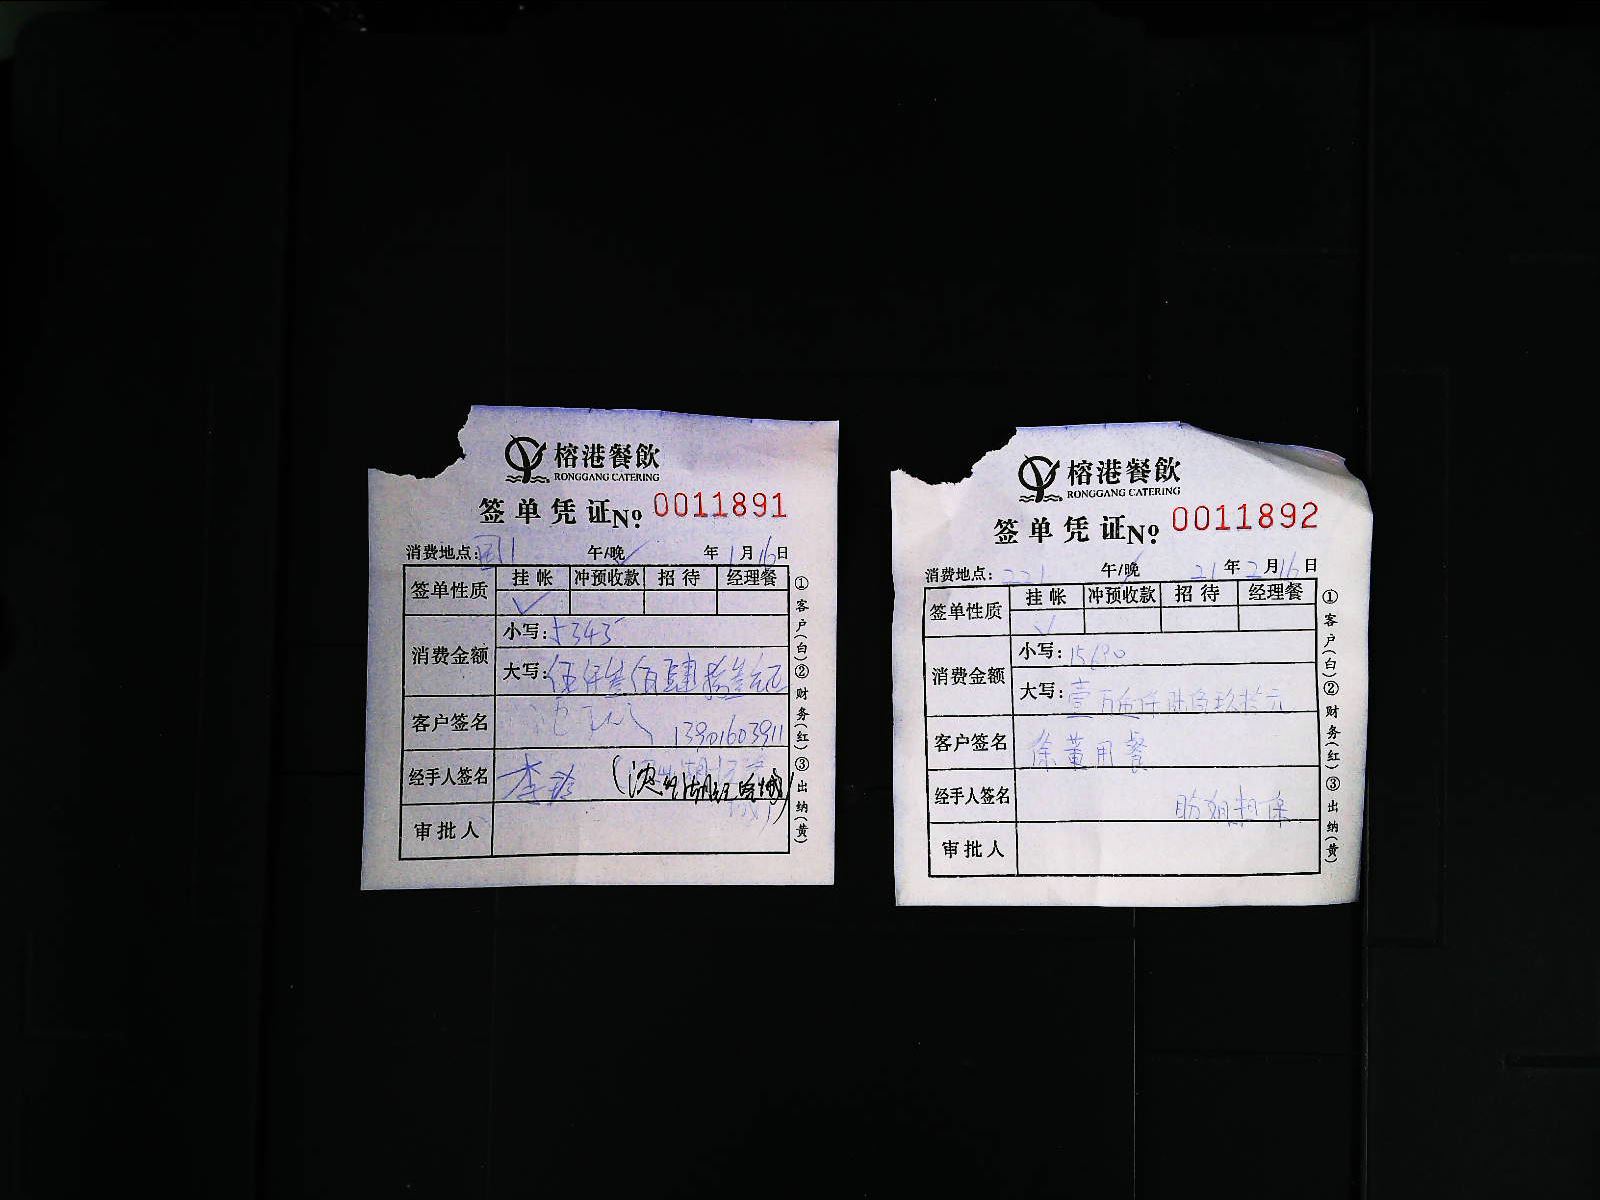 榕港餐飲
RONGGANG CATERING
签单凭证 No 0011891
消费地点: 午/晚 年 1 月 16 日
签单性质 挂帐 冲预收款 招待 经理餐
✓
消费金额 小写: 5343
大写: 伍仟叁佰肆拾叁元
客户签名 13901603911
经手人签名 李
审批人
①客户(白)②财务(红)③出纳(黄)
榕港餐飲
RONGGANG CATERING
签单凭证 No 0011892
消费地点: 221 午/晚 21 年 2 月 16 日
签单性质 挂帐 冲预收款 招待 经理餐
✓
消费金额 小写: 15690
大写: 壹万伍仟陆佰玖拾元
客户签名 徐董用餐
经手人签名
审批人
①客户(白)②财务(红)③出纳(黄)